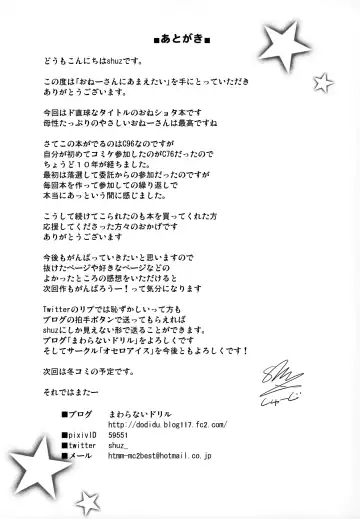 ■あとがき■
どうもこんにちはshuzです。
この度は「おねーさんにあまえたい」を手にとっていただき
ありがとうございます。
今回はド直球なタイトルのおねショタ本です
母性たっぷりのやさしいおねーさんは最高ですね
さてこの本がでるのはC96なのですが
自分が初めてコミケ参加したのがC76だったので
ちょうど１０年が経ちました。
最初は落選して委託からの参加だったのですが
毎回本を作って参加しての繰り返しで
本当にあっという間に感じました。
こうして続けてこられたのも本を買ってくれた方
応援してくださった方々のおかげです
ありがとうございます
今後もがんばっていきたいと思いますので
抜けたページや好きなページなどの
よかったところの感想をいただけると
次回作もがんばろうー！って気分になります
Twitterのリプでは恥ずかしいって方も
ブログの拍手ボタンで送ってもらえれば
shuzにしか見えない形で送ることができます。
ブログ「まわらないドリル」をよろしくです
そしてサークル「オセロアイス」を今後ともよろしくです！
次回は冬コミの予定です。
それではまたー
■ブログ　まわらないドリル
http://dodidu.blog117.fc2.com/
■pixivID　59551
■twitter　shuz_
■メール　htmm-mc2best@hotmail.co.jp